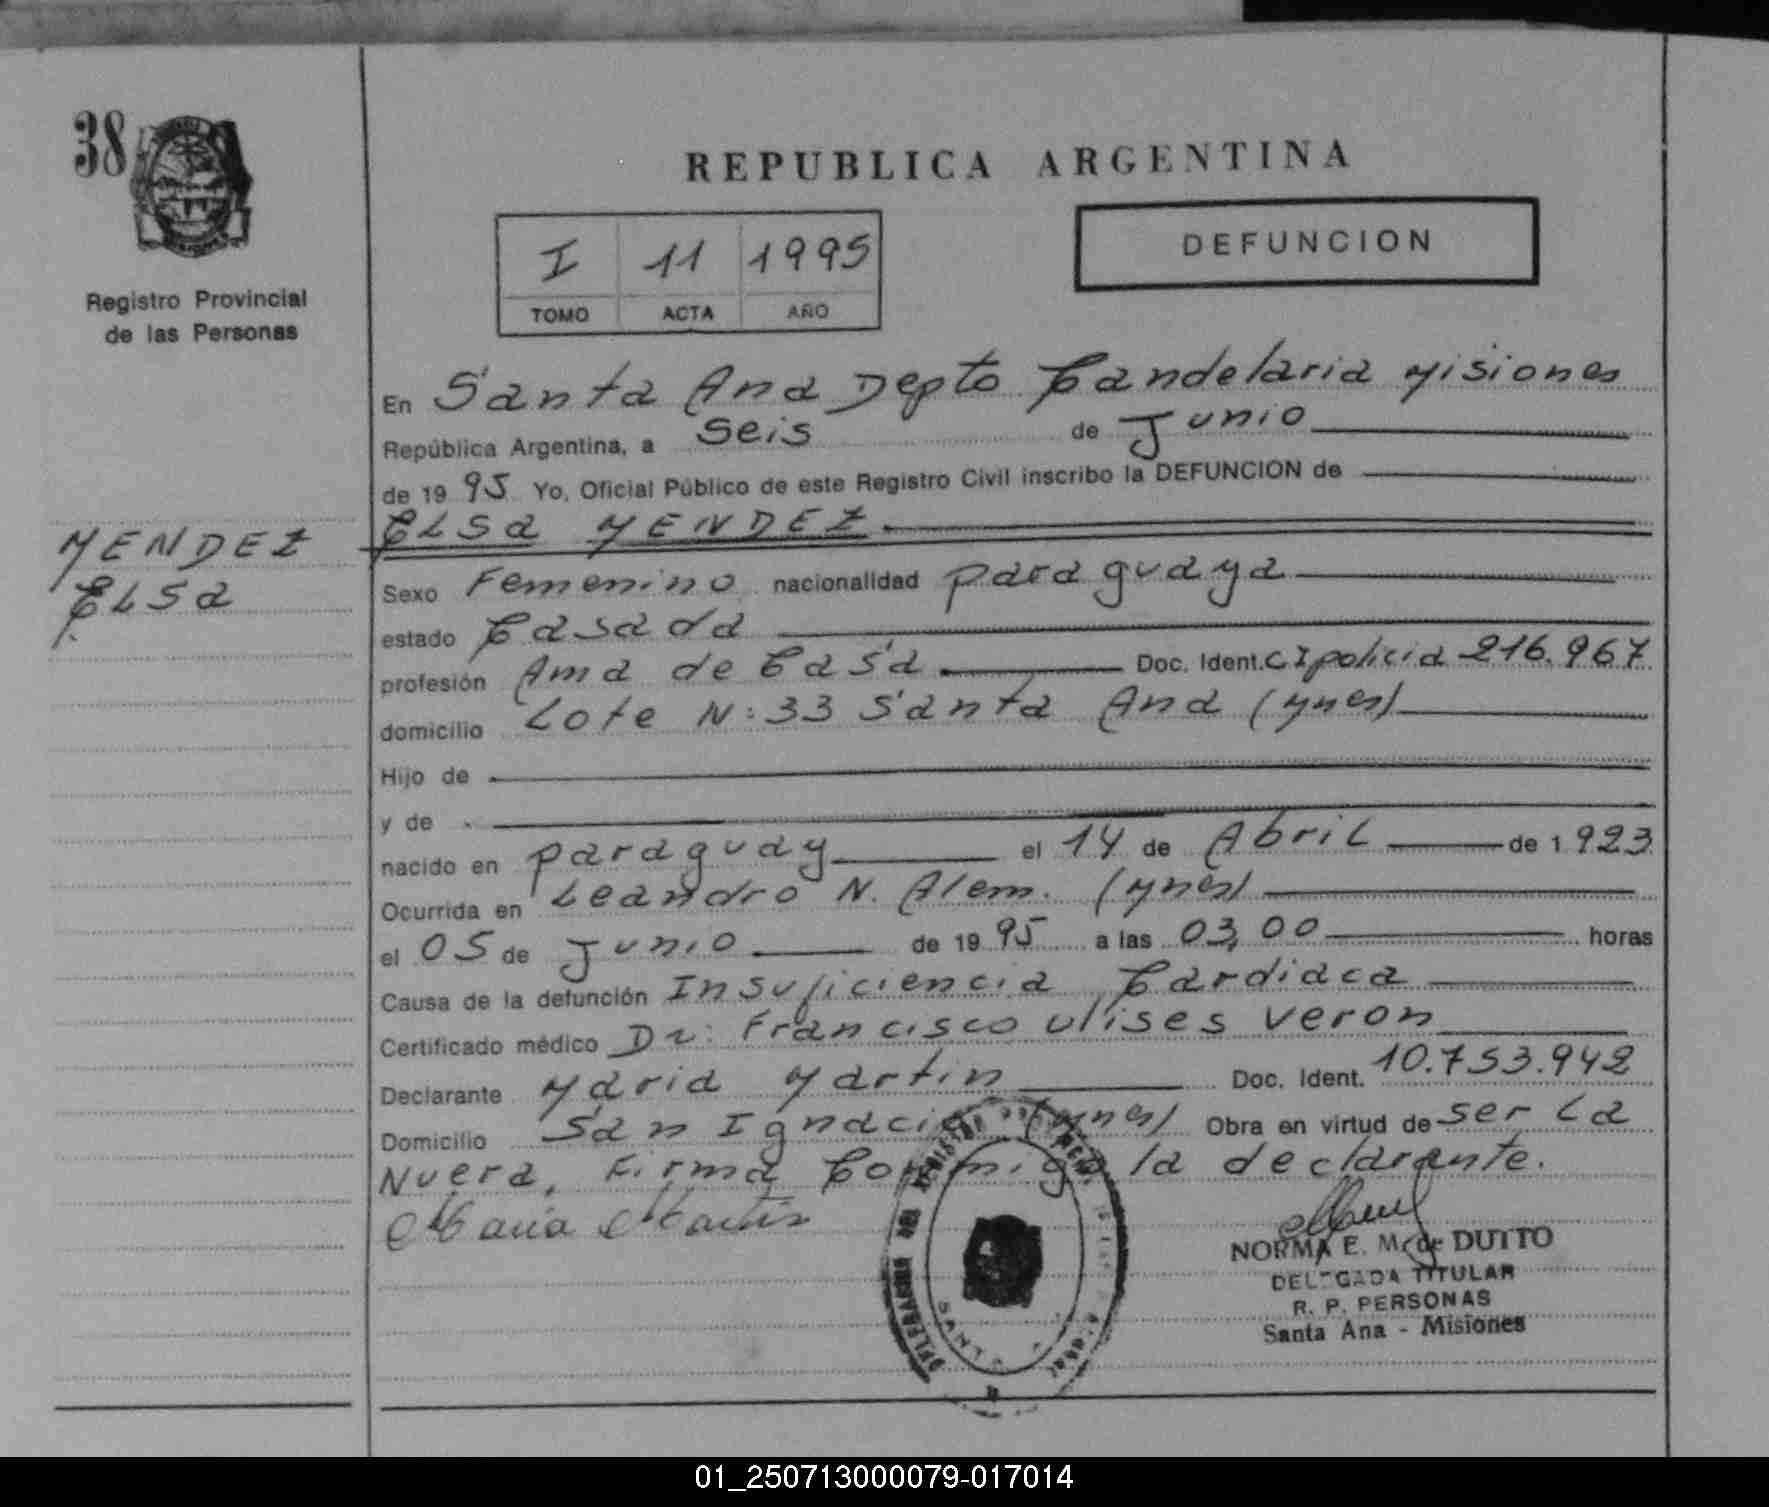 38
Registro Provincial
de las Personas
REPUBLICA ARGENTINA
I 11 1995
TOMO ACTA AÑO
DEFUNCION
MENDEZ
ELSa
En Santa Ana Depto Candelaria Misiones
República Argentina, a seis de Junio
de 19 95 Yo, Oficial Público de este Registro Civil inscribo la DEFUNCION de
ELSa MENDEZ
Sexo Femenino nacionalidad paraguaya
estado Casada
profesión Ama de Casa Doc. Ident. CI policia 216.967
domicilio Lote N: 33 Santa Ana (Mnes)
Hijo de
y de
nacido en paraguay el 14 de Abril de 1 923
Ocurrida en Leandro N. Alem. (Mnes)
el 05 de Junio de 19 95 a las 03,00 horas
Causa de la defunción Insuficiencia Cardiaca
Certificado médico Dr: Francisco Ulises Veron
Declarante Maria Martin Doc. Ident. 10.753.942
Domicilio San Ignacio (Mnes) Obra en virtud de ser La
Nuera, Firma Conmigo la declarante.
Maria Martin
NORMA E. M. de DUTTO
DELEGADA TITULAR
R. P. PERSONAS
Santa Ana - Misiones
DELEGACION DEL REGISTRO
SANTA
01_250713000079-017014